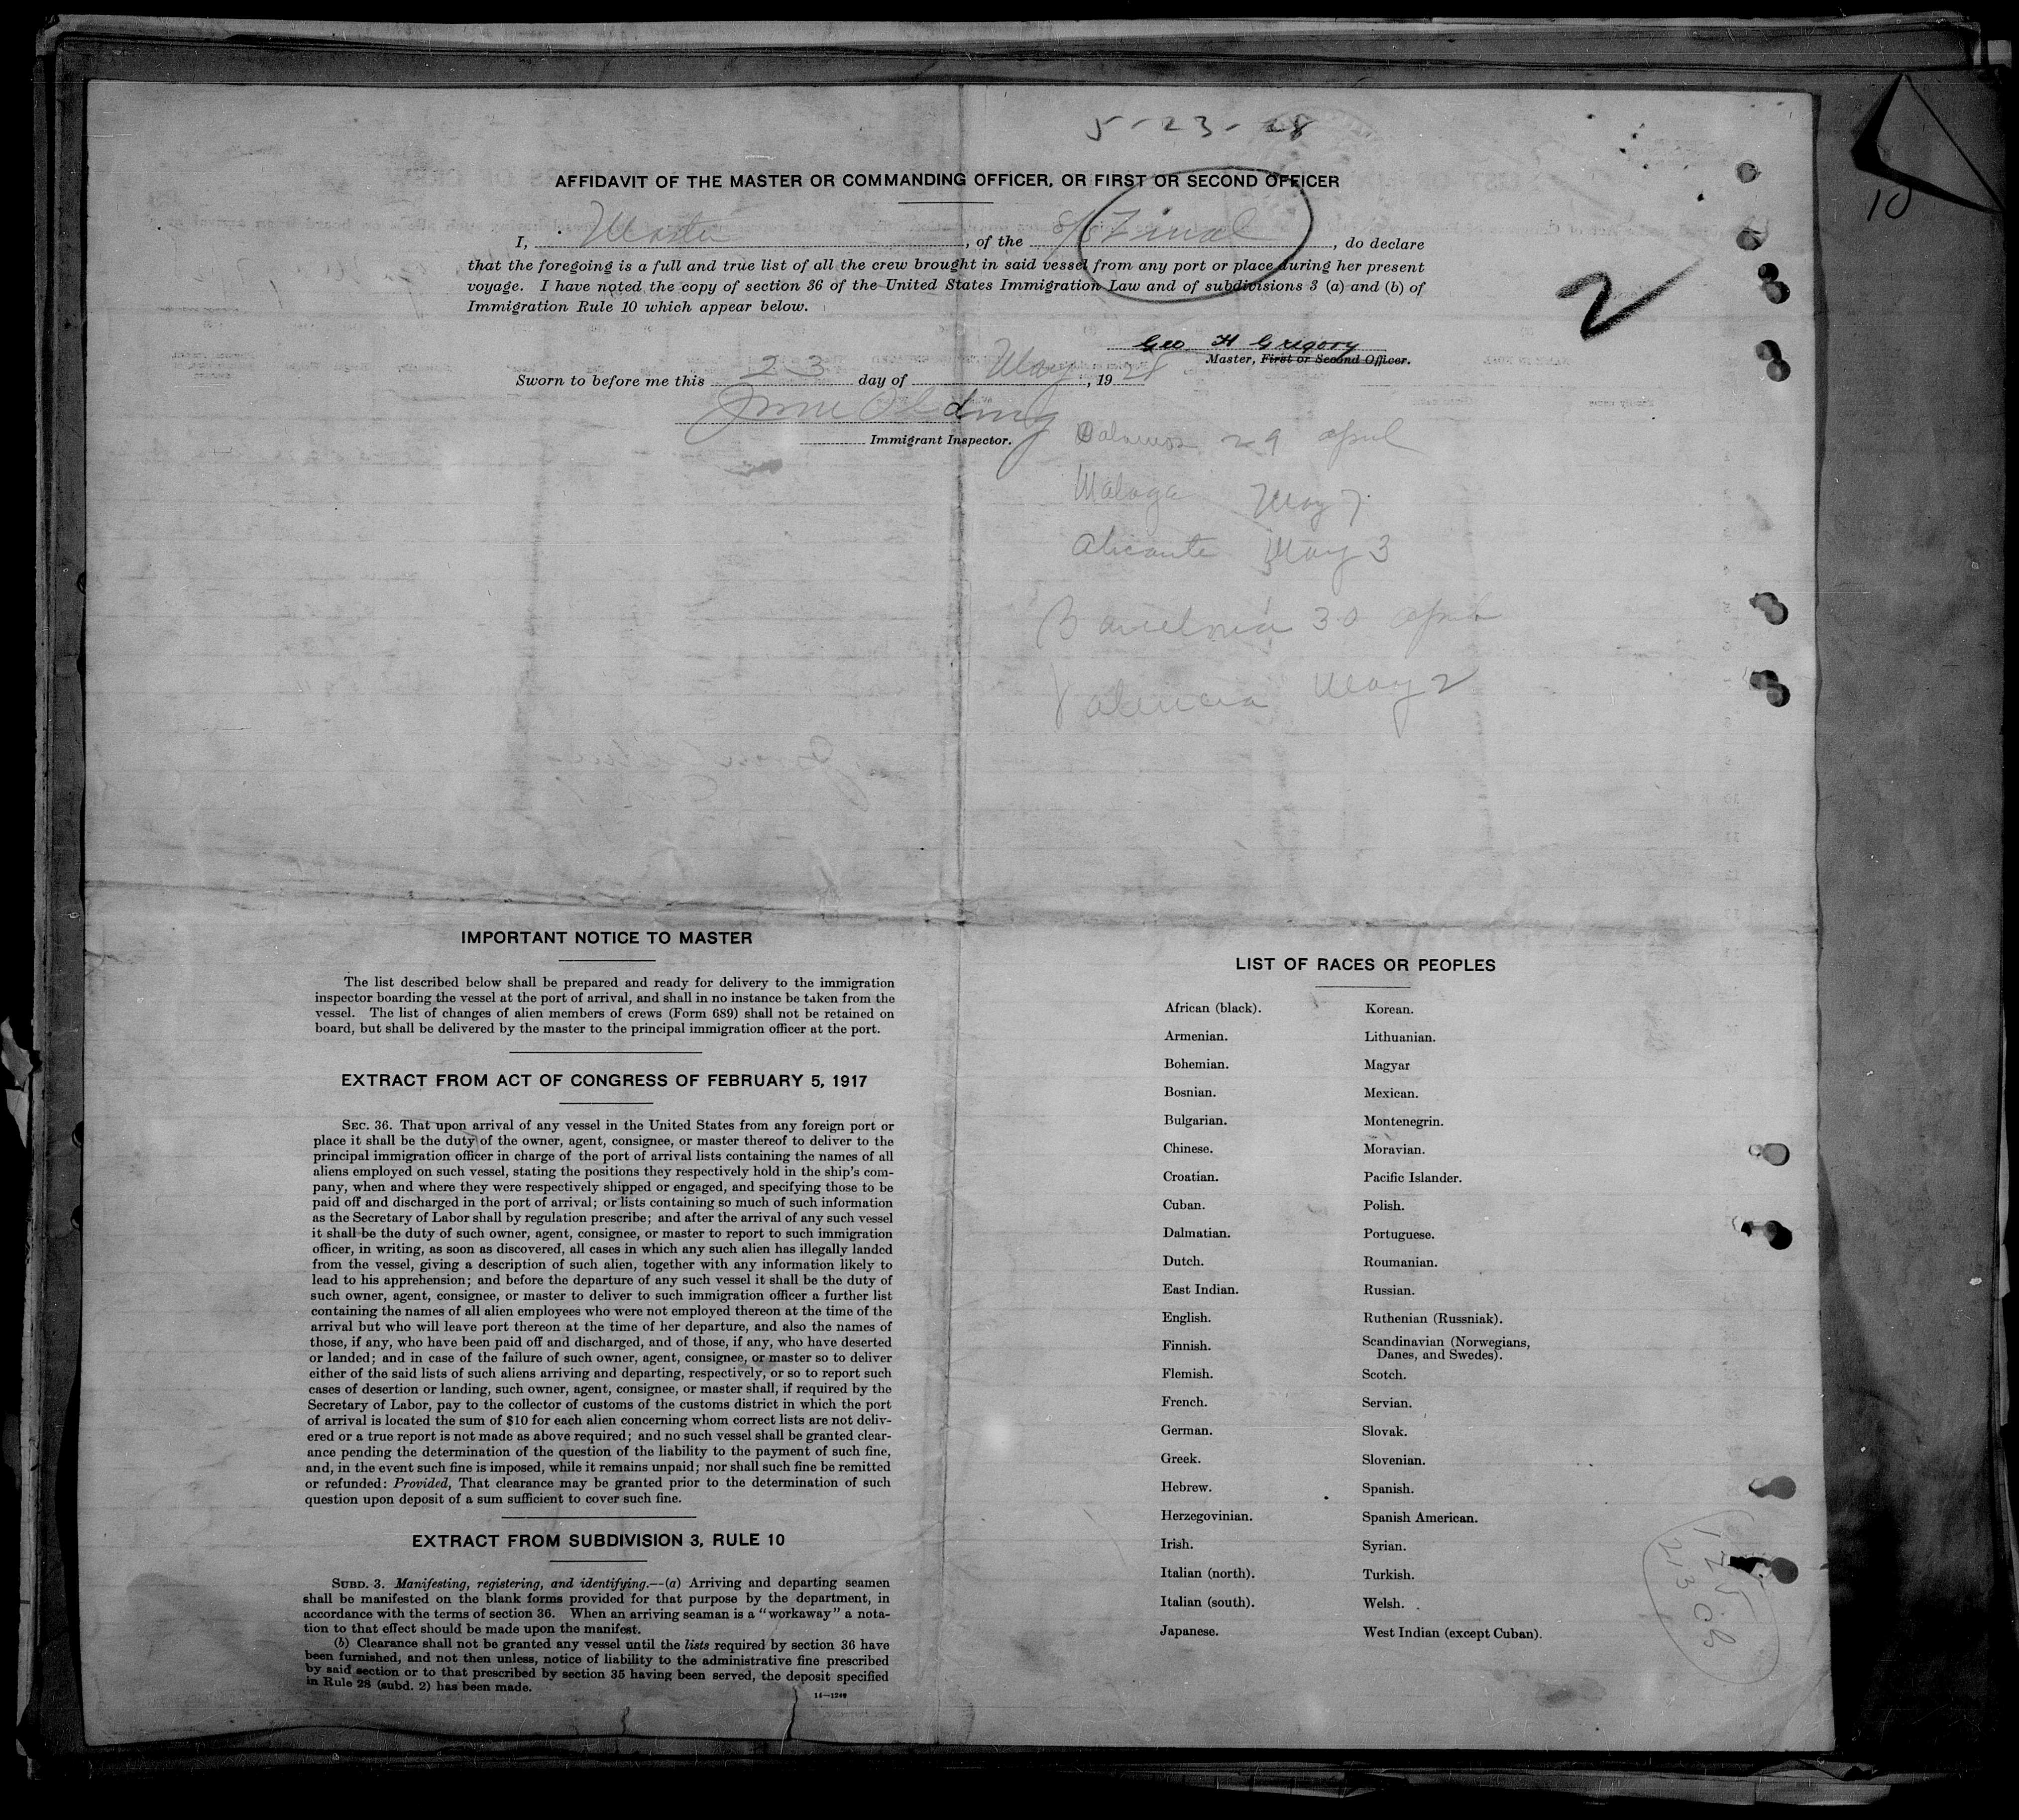 5-23-28
AFFIDAVIT OF THE MASTER OR COMMANDING OFFICER, OR FIRST OR SECOND OFFICER
I, Master, of the S/S Final, do declare
that the foregoing is a full and true list of all the crew brought in said vessel from any port or place during her present
voyage. I have noted the copy of section 36 of the United States Immigration Law and of subdivisions 3 (a) and (b) of
Immigration Rule 10 which appear below.
10
2
Geo H Gregory
Master, First or Second Officer.
Sworn to before me this 23 day of May, 1928
Immigrant Inspector.
29 april
Malaga May 7
Alicante May 3
Barcelona 30 april
Valencia May 2
IMPORTANT NOTICE TO MASTER
The list described below shall be prepared and ready for delivery to the immigration
inspector boarding the vessel at the port of arrival, and shall in no instance be taken from the
vessel. The list of changes of alien members of crews (Form 689) shall not be retained on
board, but shall be delivered by the master to the principal immigration officer at the port.
EXTRACT FROM ACT OF CONGRESS OF FEBRUARY 5, 1917
SEC. 36. That upon arrival of any vessel in the United States from any foreign port or
place it shall be the duty of the owner, agent, consignee, or master thereof to deliver to the
principal immigration officer in charge of the port of arrival lists containing the names of all
aliens employed on such vessel, stating the positions they respectively hold in the ship's com-
pany, when and where they were respectively shipped or engaged, and specifying those to be
paid off and discharged in the port of arrival; or lists containing so much of such information
as the Secretary of Labor shall by regulation prescribe; and after the arrival of any such vessel
it shall be the duty of such owner, agent, consignee, or master to report to such immigration
officer, in writing, as soon as discovered, all cases in which any such alien has illegally landed
from the vessel, giving a description of such alien, together with any information likely to
lead to his apprehension; and before the departure of any such vessel it shall be the duty of
such owner, agent, consignee, or master to deliver to such immigration officer a further list
containing the names of all alien employees who were not employed thereon at the time of the
arrival but who will leave port thereon at the time of her departure, and also the names of
those, if any, who have been paid off and discharged, and of those, if any, who have deserted
or landed; and in case of the failure of such owner, agent, consignee, or master so to deliver
either of the said lists of such aliens arriving and departing, respectively, or so to report such
cases of desertion or landing, such owner, agent, consignee, or master shall, if required by the
Secretary of Labor, pay to the collector of customs of the customs district in which the port
of arrival is located the sum of $10 for each alien concerning whom correct lists are not deliv-
ered or a true report is not made as above required; and no such vessel shall be granted clear-
ance pending the determination of the question of the liability to the payment of such fine,
and, in the event such fine is imposed, while it remains unpaid; nor shall such fine be remitted
or refunded: Provided, That clearance may be granted prior to the determination of such
question upon deposit of a sum sufficient to cover such fine.
EXTRACT FROM SUBDIVISION 3, RULE 10
SUBD. 3. Manifesting, registering, and identifying.—(a) Arriving and departing seamen
shall be manifested on the blank forms provided for that purpose by the department, in
accordance with the terms of section 36. When an arriving seaman is a "workaway" a nota-
tion to that effect should be made upon the manifest.
(b) Clearance shall not be granted any vessel until the lists required by section 36 have
been furnished, and not then unless, notice of liability to the administrative fine prescribed
by said section or to that prescribed by section 35 having been served, the deposit specified
in Rule 28 (subd. 2) has been made.
14—1249
LIST OF RACES OR PEOPLES
African (black).
Armenian.
Bohemian.
Bosnian.
Bulgarian.
Chinese.
Croatian.
Cuban.
Dalmatian.
Dutch.
East Indian.
English.
Finnish.
Flemish.
French.
German.
Greek.
Hebrew.
Herzegovinian.
Irish.
Italian (north).
Italian (south).
Japanese.
Korean.
Lithuanian.
Magyar
Mexican.
Montenegrin.
Moravian.
Pacific Islander.
Polish.
Portuguese.
Roumanian.
Russian.
Ruthenian (Russniak).
Scandinavian (Norwegians,
Danes, and Swedes).
Scotch.
Servian.
Slovak.
Slovenian.
Spanish.
Spanish American.
Syrian.
Turkish.
Welsh.
West Indian (except Cuban).